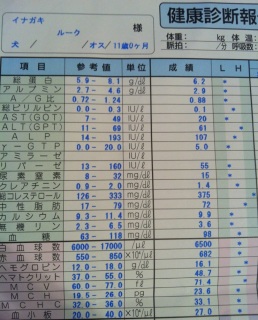 イナガキ
ルーク 様
犬 / / オス / 11歳0ヶ月
健康診断報
体重: kg 体温:
脈拍: /分 呼吸数:
項目 参考値 単位 成績 L H
総蛋白 5.9 - 8.1 g/dl 6.2
アルブミン 2.7 - 4.6 g/dl 2.9
A/G比 0.72 - 1.24 0.88
総ビリルビン 0.0 - 0.3 0.1
AST(GOT) 7 - 49 IU/l 20
ALT(GPT) 11 - 69 IU/l 61
ALP 14 - 193 IU/l 107
γ-GTP 0.0 - 20.0 IU/l 5.0
アミラーゼ IU/l
リパーゼ 13 - 160 IU/l 55
尿素窒素 8 - 32 mg/dl 15
クレアチニン 0.9 - 2.0 mg/dl 1.4
総コレステロール 126 - 333 mg/dl 375
中性脂肪 17 - 79 mg/dl 72
カルシウム 9.3 - 11.4 mg/dl 9.9
無機リン 2.3 - 6.5 mg/dl 3.6
血糖 63 - 118 mg/dl 98
白血球数 6000 - 17000 /μl 6500
赤血球数 550 - 850 682
ヘモグロビン 12.0 - 18.0 g/dl 16.1
ヘマトクリット 37.0 - 55.0 % 48.7
MCV 60.0 - 77.0 fl 71.4
MCH 19.5 - 26.0 pg 23.6
MCHC 32.0 - 36.0 % 33.1
血小板 20.0 - 40.0 27.0